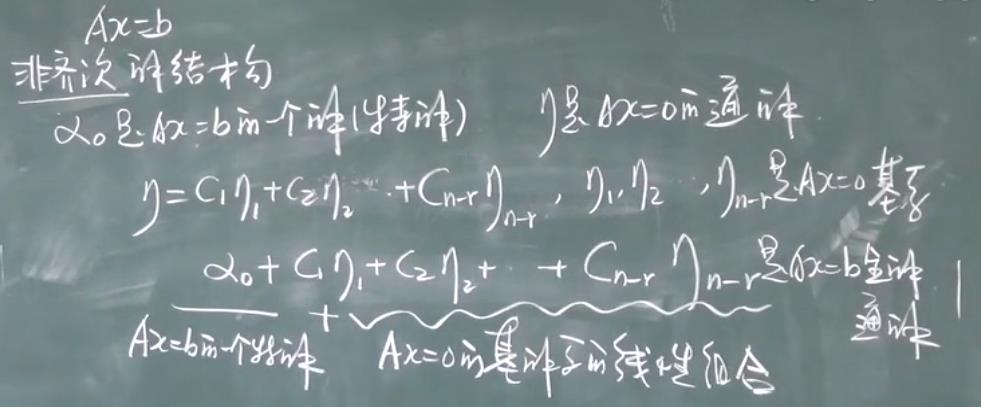 Ax=b
非齐次 解结构
α₀是Ax=b的一个解(特解) η是Ax=0的通解.
η=C₁η₁+C₂η₂ ‥+Cₙ₋ᵣηₙ₋ᵣ, η₁,η₂ ‥,ηₙ₋ᵣ是Ax=0基系
α₀+C₁η₁+C₂η₂+ ‥ +Cₙ₋ᵣηₙ₋ᵣ是Ax=b全部解
通解
+
Ax=b的一个特解 Ax=0的基解系的线性组合